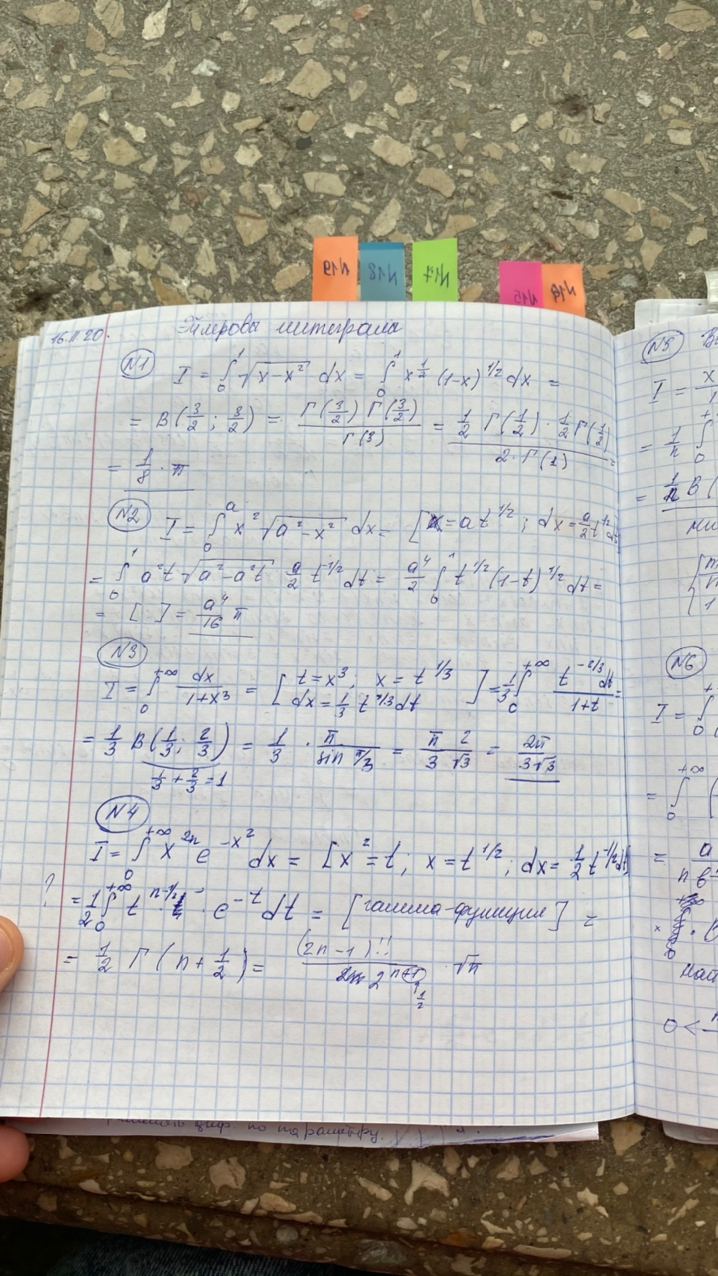 N19
N18
N17
N15
16.11.20.
Эйлеровы интегралы
N1 I = ∫₀¹ √(x-x²) dx = ∫₀¹ x^{1/2} (1-x)^{1/2} dx =
= B(3/2; 3/2) = Γ(3/2) Γ(3/2) / Γ(3) = 1/2 Γ(1/2) · 1/2 Γ(1/2) / 2·Γ(1) =
= 1/8 · π
N2 I = ∫₀ᵃ x² √(a²-x²) dx = [x = at^{1/2}; dx =
= ∫₀¹ a²t √(a²-a²t) a/2 t^{-1/2} dt = a⁴/2 ∫₀¹ t^{1/2} (1-t)^{1/2} dt =
= [ ] = a⁴/16 π
N3
I = ∫₀^{+∞} dx/(1+x³) = [t = x³; x = t^{1/3}
dx = 1/3 t^{-2/3} dt] = 1/3 ∫₀^{+∞} t^{-2/3} dt/(1+t) =
= 1/3 B(1/3; 2/3) = 1/3 · π/sin π/3 = π/3 2/√3 = 2π/3√3
1/3 + 2/3 = 1
N4
I = ∫₀^{+∞} x^{2n} e^{-x²} dx = [x² = t; x = t^{1/2}; dx = 1/2 t^{-1/2} dt]
? = 1/2 ∫₀^{+∞} t^{n-1/2} · e^{-t} dt = [гамма-функция] =
= 1/2 Γ(n + 1/2) = (2n-1)!! / 2^{n+1} · √π
1/2
цир. по параметру.
N5
I = x
= 1/n ∫₀
= 1/n B(
N6
I = ∫₀
= ∫₀^{+∞} (
= a
0 <